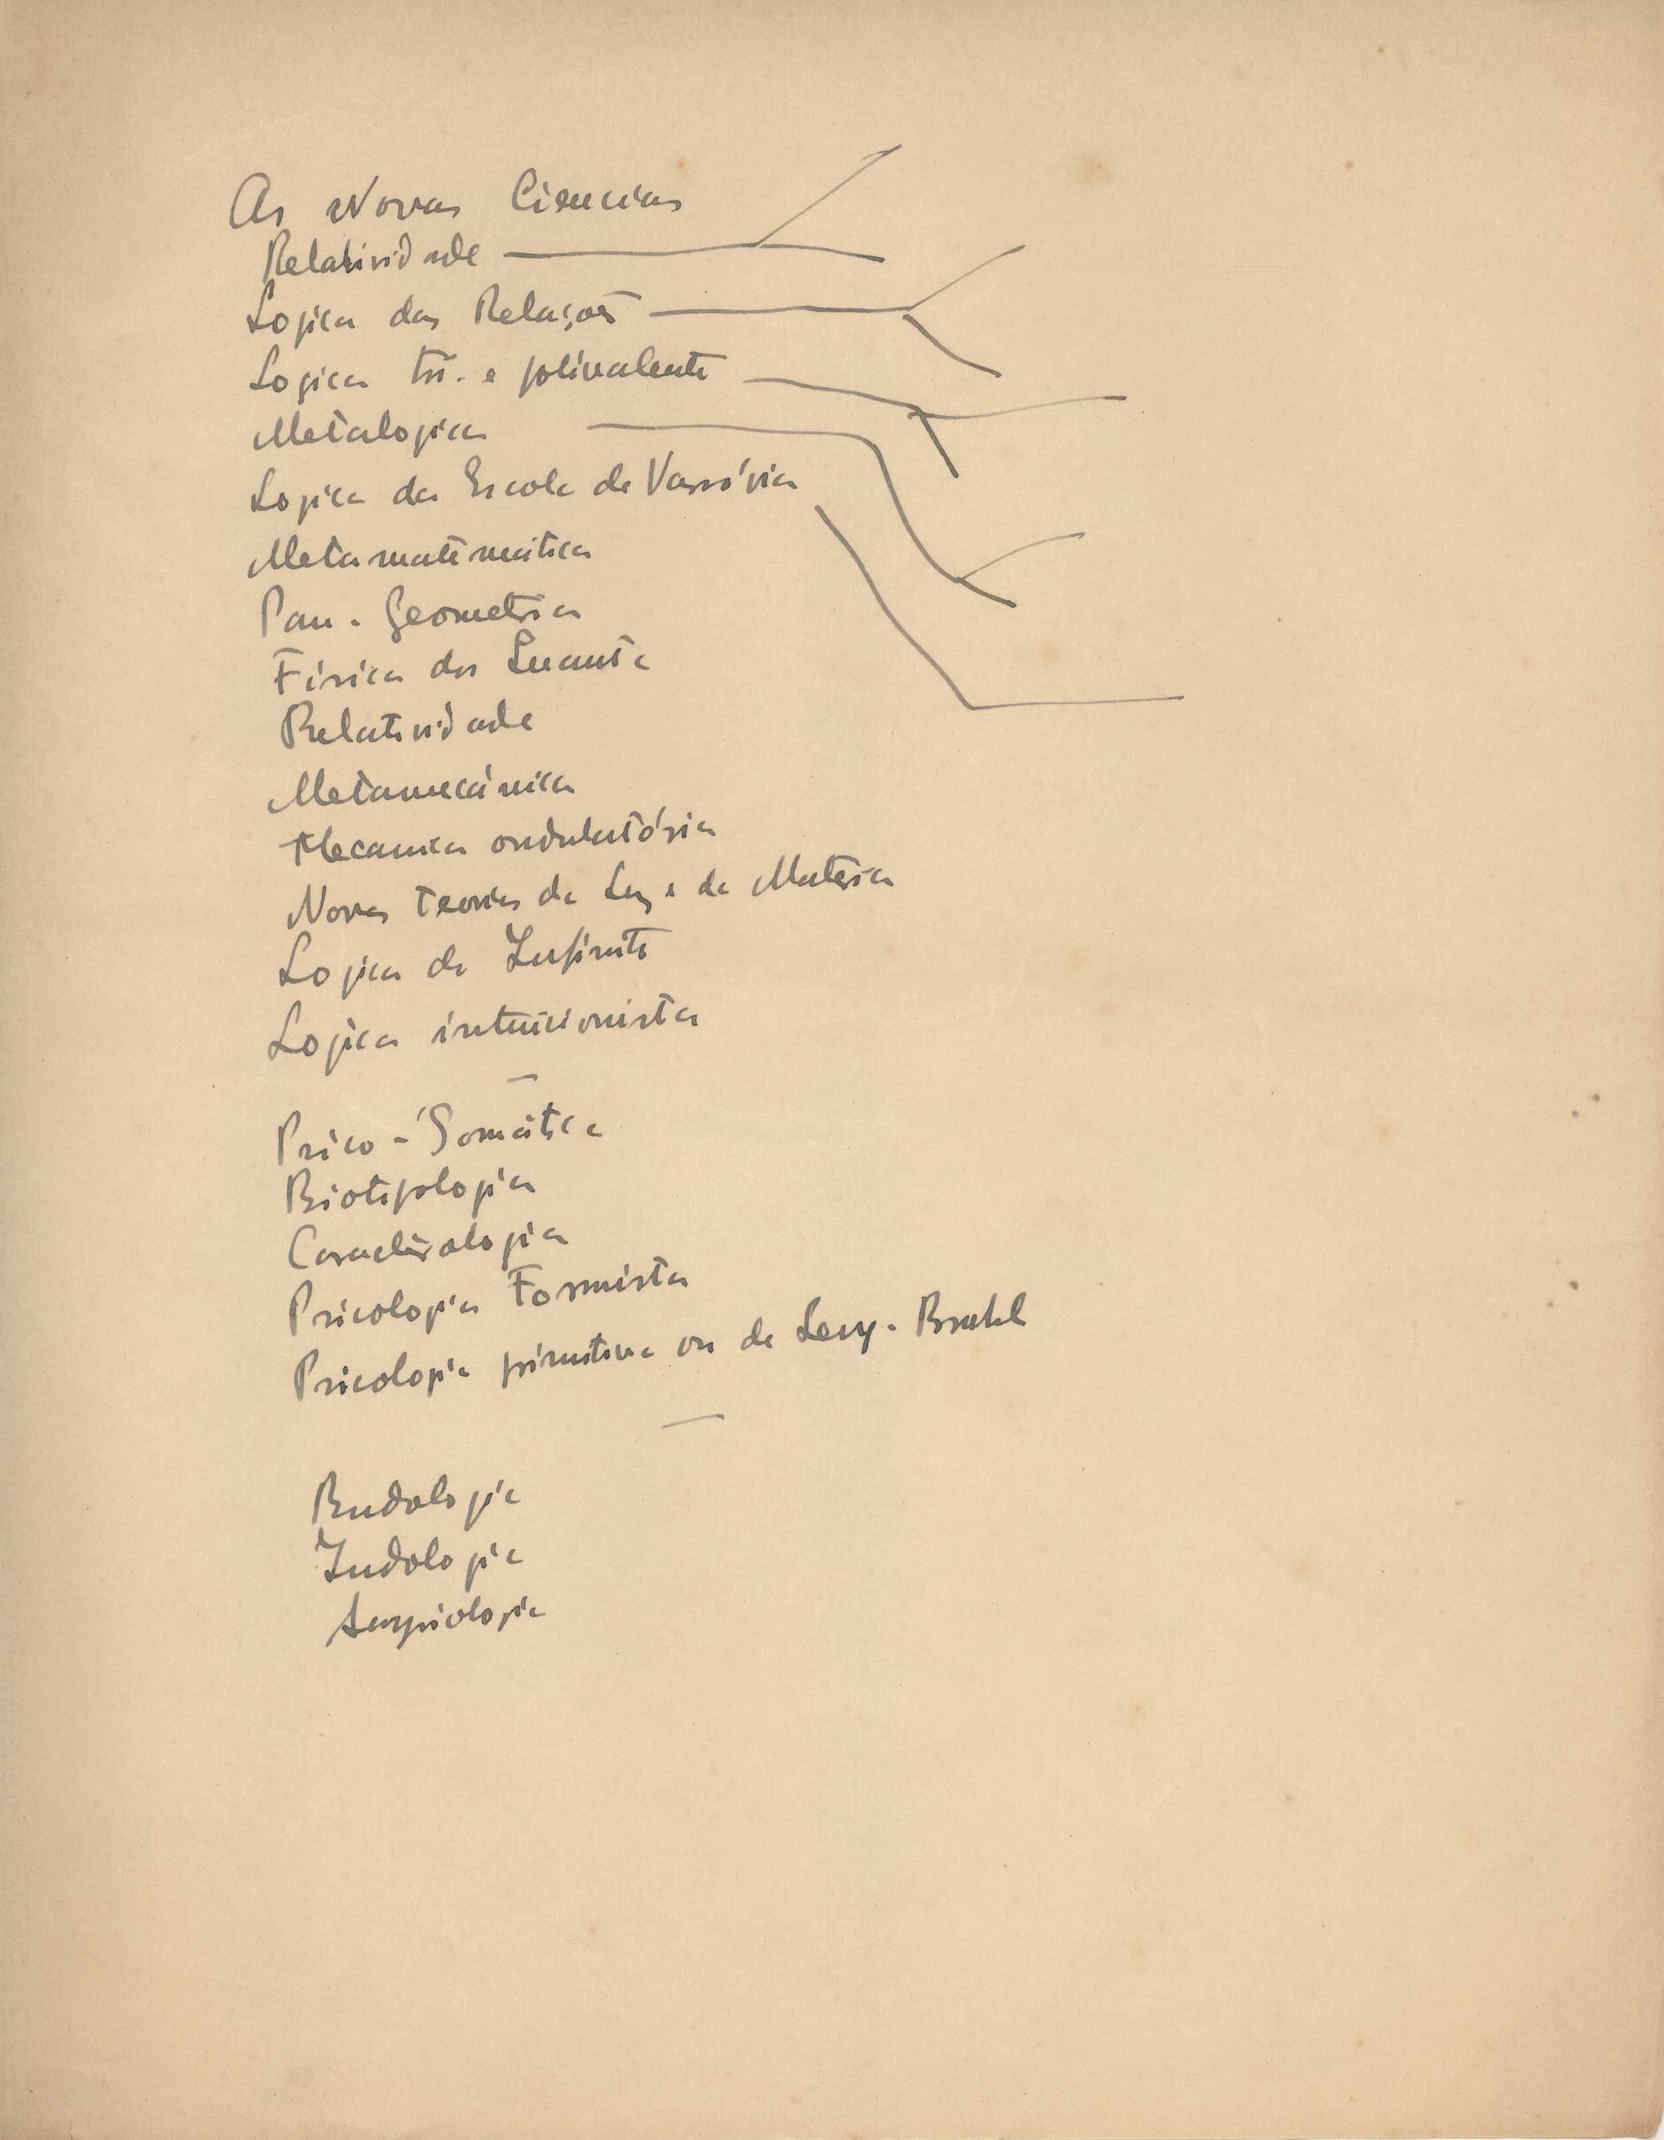 As Novas Ciencias
Relatividade
Logica das Relações
Logica tri. e polivalente
Metalogica
Logica da Escola de Varsóvia
Metamatemática
Pan-Geometria
Física dos Quanta
Relatividade
Metamecânica
Mecanica ondulatória
Novas teorias da Luz e da Materia
Logica do Infinito
Logica intuicionista
Psico-Somática
Biotipologia
Caracterologia
Psicologia Formista
Psicologia primitiva ou de Levy-Bruhl
Budologia
Indologia